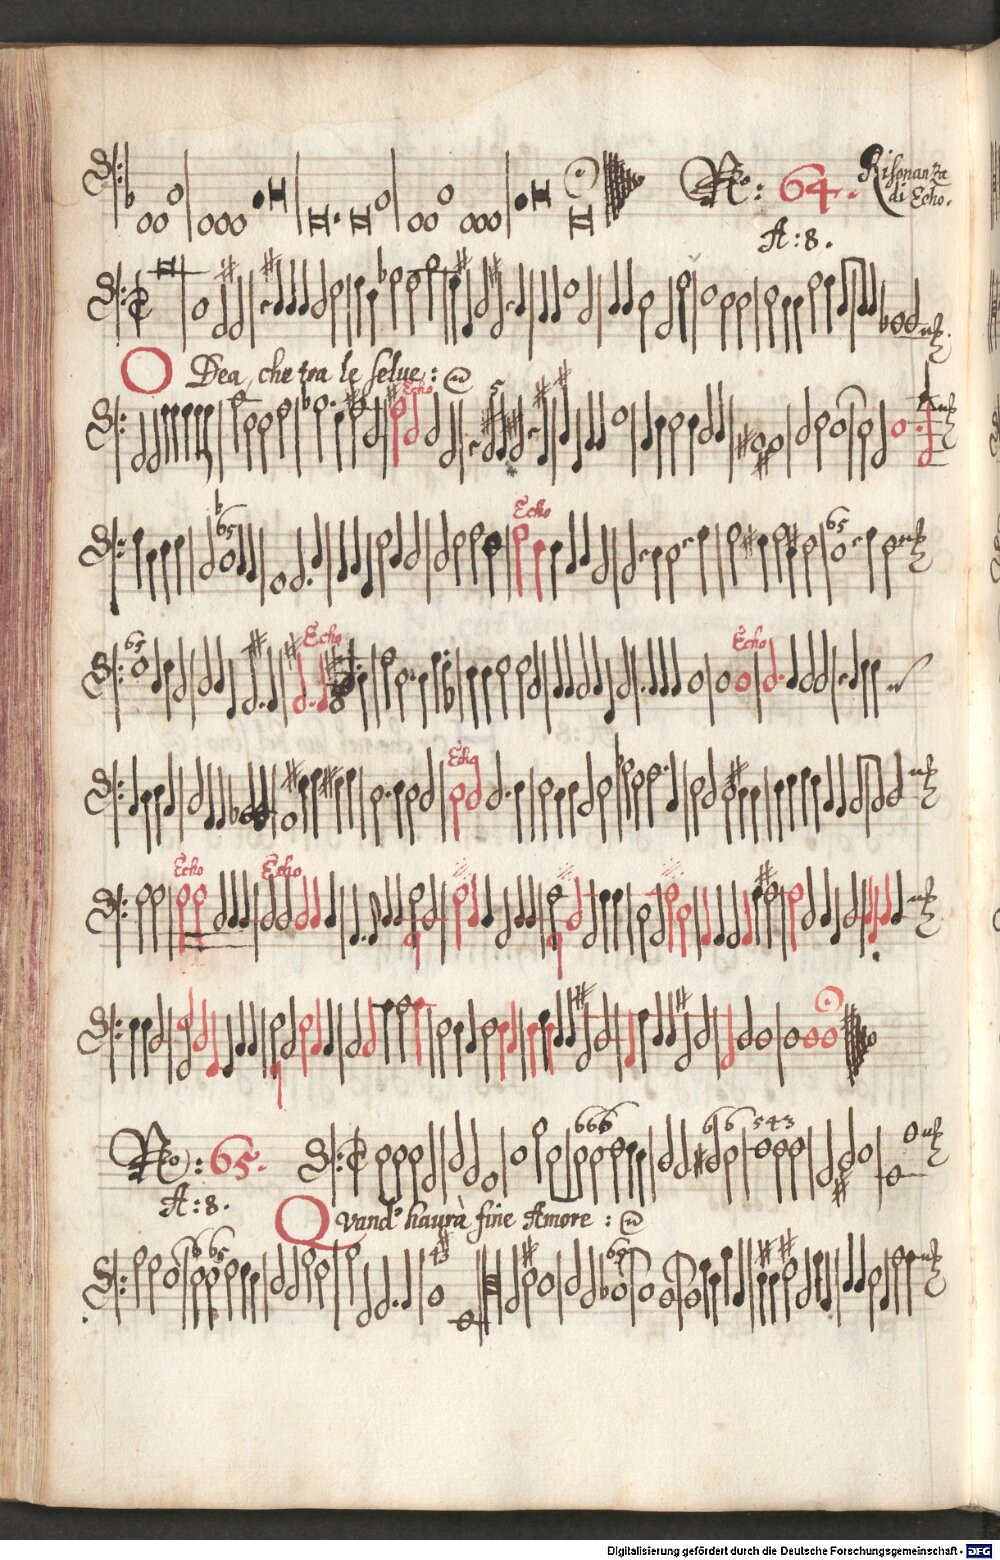 No: 64. Risonanza
di Echo.
A: 8.
O Dea, che tra le selue:
Echo
5
b
65
Echo
65
65
Echo
Echo
Echo
Echo
Echo
No: 65.
666
6 6 543
A: 8.
Quand' haurà fine Amore:
b 65
43
Digitalisierung gefördert durch die Deutsche Forschungsgemeinschaft - DFG